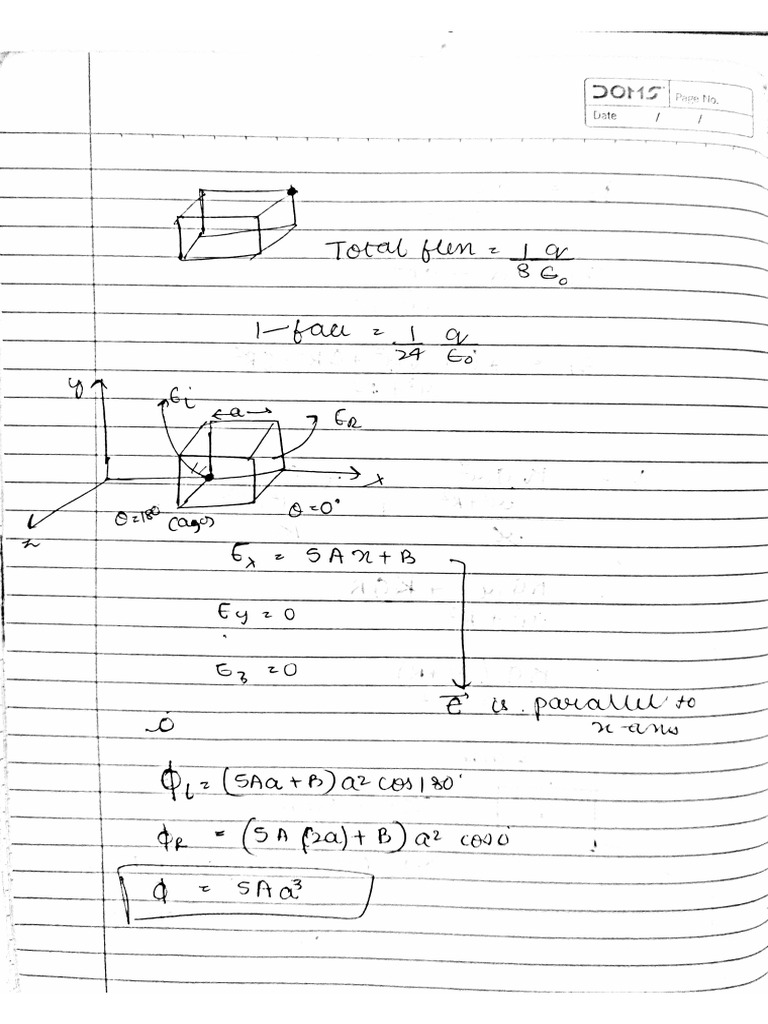 DOMS Page No.
Date / /
Total flux = 1/8 q/ε₀
1-face = 1/24 q/ε₀
y
E_L
←a→
E_R
x
z
θ=180
θ=0°
E_x = 5Ax+B
E_y = 0
E_z = 0
E⃗ is parallel to
x-axis
ϕ_L = (5Aa+B)a² cos180°
ϕ_R = (5A(2a)+B)a² cos0
ϕ = 5Aa³